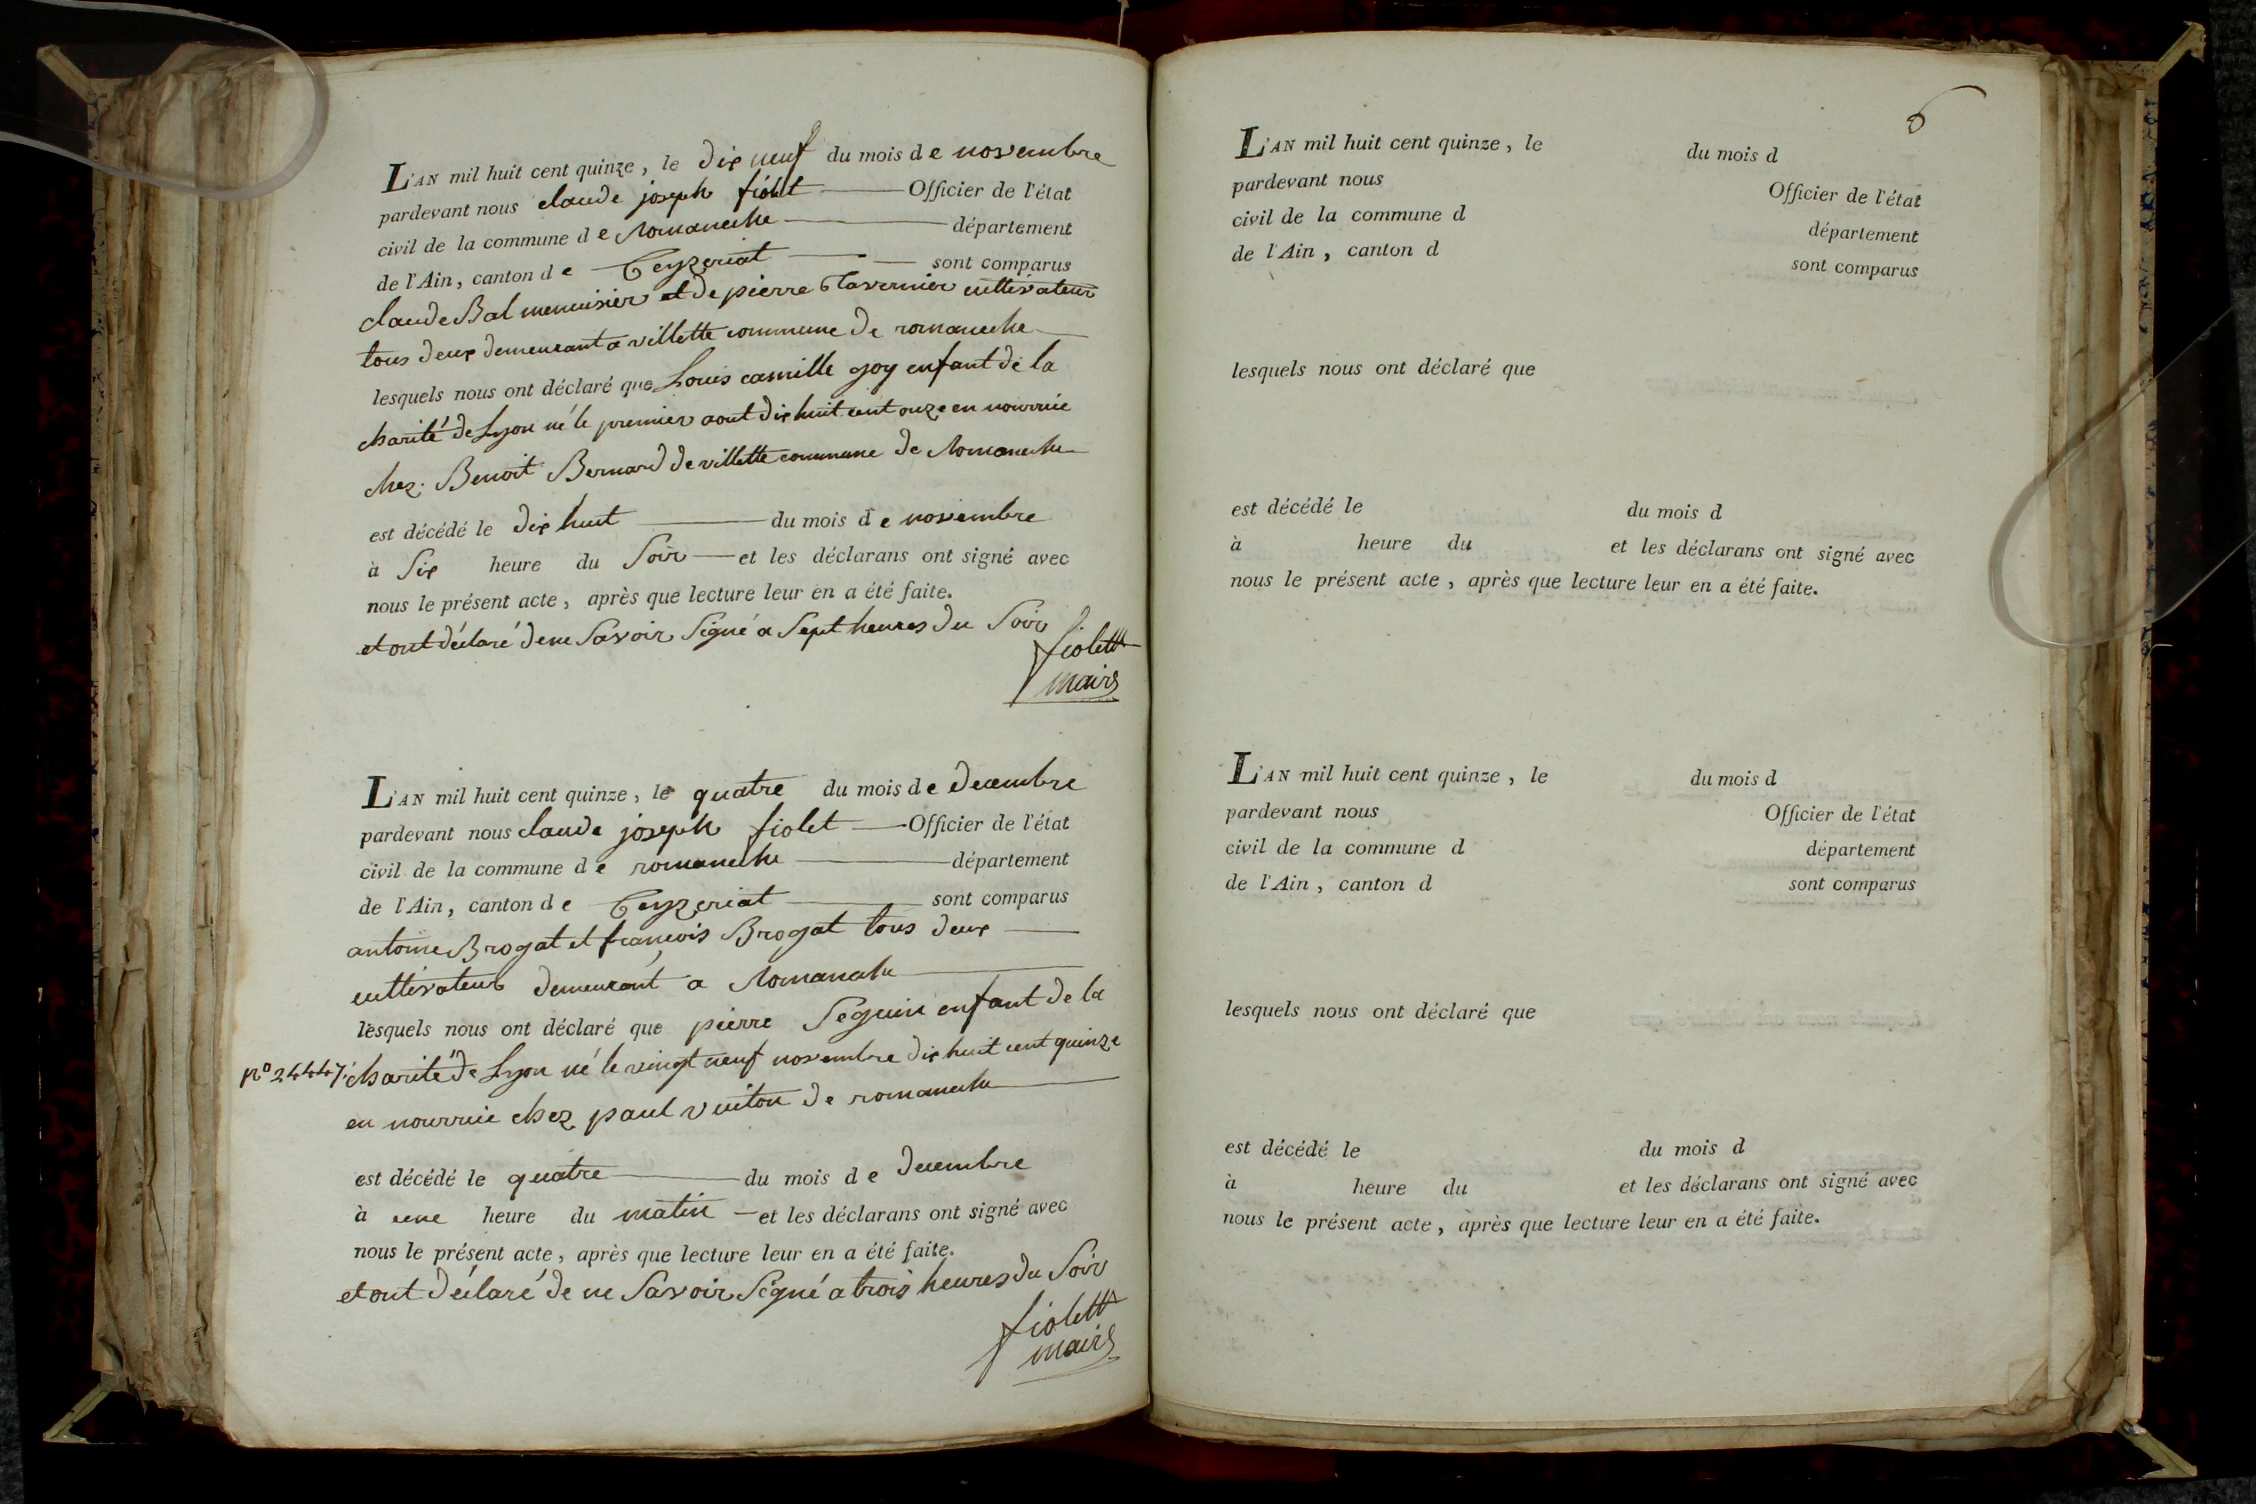 L'AN mil huit cent quinze, le dix neuf du mois de novembre
pardevant nous claude joseph fiolet Officier de l'état
civil de la commune de Romaneche département
de l'Ain, canton de Ceyzeriat sont comparus
claude Bal menuisier et de pierre Tavernier cultivateur
tous deux demeurant a villette commune de romaneche
lesquels nous ont déclaré que Louis camille goy enfant de la
charité de Lyon né le premier aout dix huit cent onze en nourrice
chez Benoit Bernard de villette commune de Romaneche
est décédé le dix huit du mois de novembre
à Six heure du Soir et les déclarans ont signé avec
nous le présent acte, après que lecture leur en a été faite.
et ont déclaré de ne Savoir Signé a Sept heures du Soir
fiolet
maire
L'AN mil huit cent quinze, le quatre du mois de decembre
pardevant nous claude joseph fiolet Officier de l'état
civil de la commune de romaneche département
de l'Ain, canton de Ceyzeriat sont comparus
antoine Brogat et françois Brogat tous deux
cultivateur demeurant a Romaneche
lesquels nous ont déclaré que pierre Seguin enfant de la
n° 24447. charité de Lyon né le vingt neuf novembre dix huit cent quinze
en nourrice chez paul vuiton de romaneche
est décédé le quatre du mois de decembre
à une heure du matin et les déclarans ont signé avec
nous le présent acte, après que lecture leur en a été faite.
et ont déclaré de ne Savoir Signé a trois heures du Soir
fiolet
maire
6
L'AN mil huit cent quinze, le du mois d
pardevant nous Officier de l'état
civil de la commune d département
de l'Ain, canton d sont comparus
lesquels nous ont déclaré que
est décédé le du mois d
à heure du et les déclarans ont signé avec
nous le présent acte, après que lecture leur en a été faite.
L'AN mil huit cent quinze, le du mois d
pardevant nous Officier de l'état
civil de la commune d département
de l'Ain, canton d sont comparus
lesquels nous ont déclaré que
est décédé le du mois d
à heure du et les déclarans ont signé avec
nous le présent acte, après que lecture leur en a été faite.